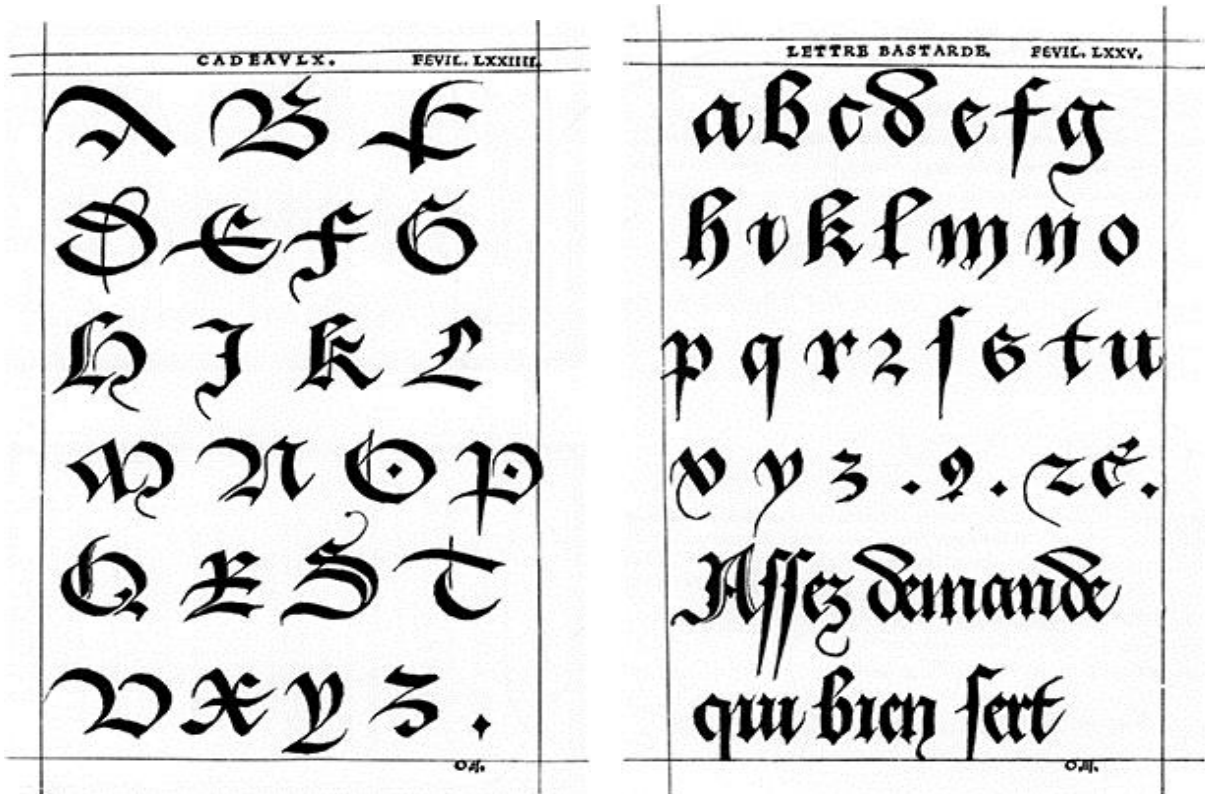 CADEAVLX. FEVIL. LXXIIII.
A B C
D E F G
H I K L
M N O P
Q R S T
V X Y Z .
LETTRE BASTARDE. FEVIL. LXXV.
a b c d e f g
h i k l m n o
p q r ꝛ ſ s t u
v y z . ꝯ . ⁊c̃.
Aſſez demande
qui bien ſert